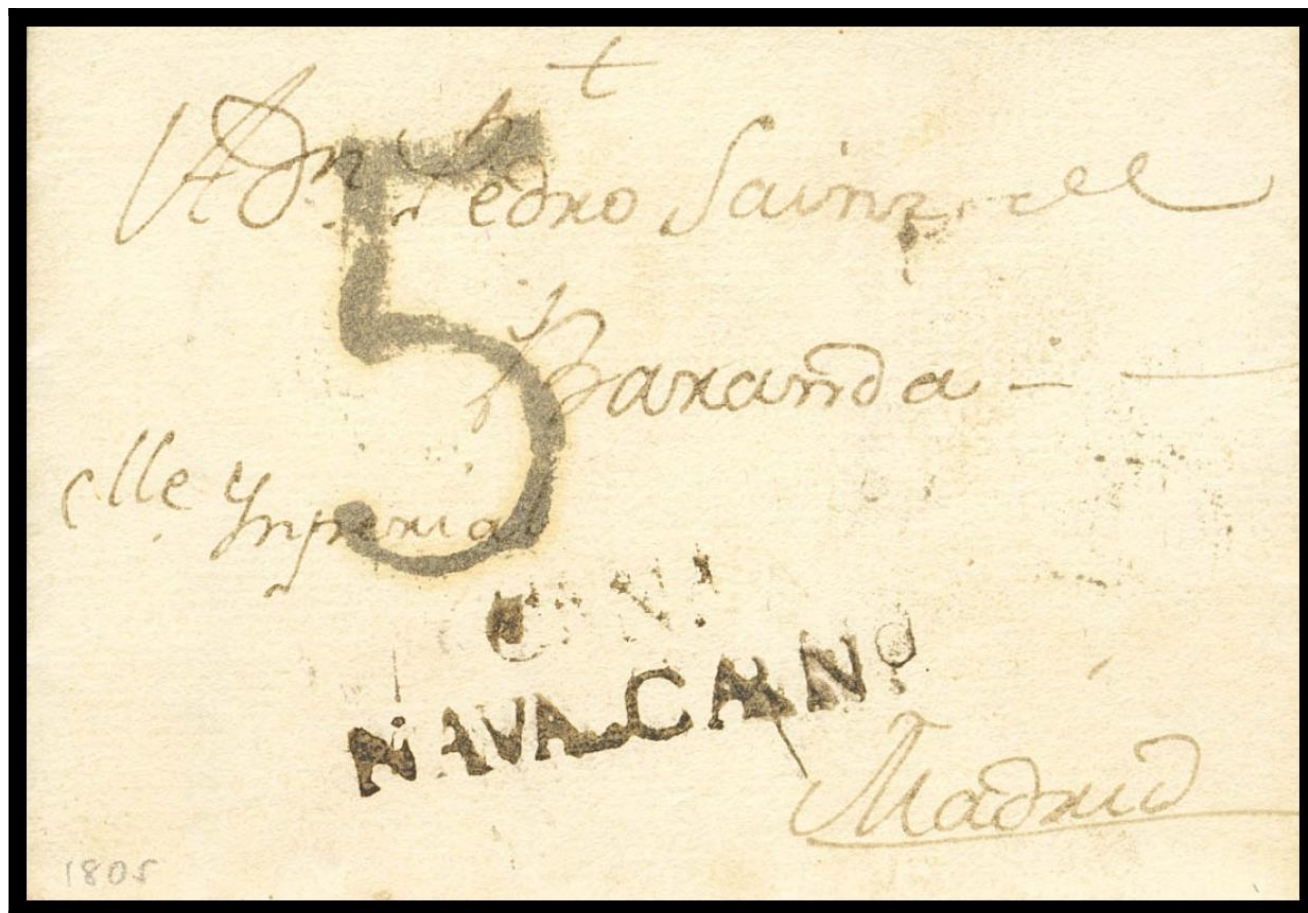 A Dn Pedro Sainz de
Baranda
5
Clle Ynperial
C.N.
NAVALCARNº
Madrid
1805